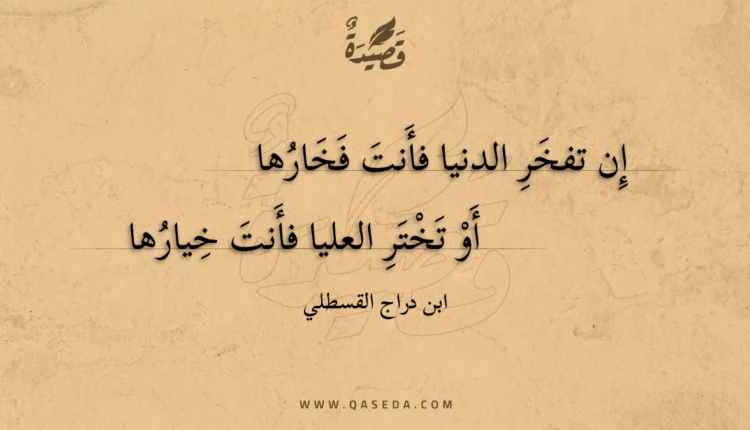 قَصِيدَةٌ
إِن تفخَرِ الدنيا فأَنتَ فَخَارُها
أَوْ تَخْتَرِ العليا فأَنتَ خِيارُها
ابن دراج القسطلي
WWW.QASEDA.COM